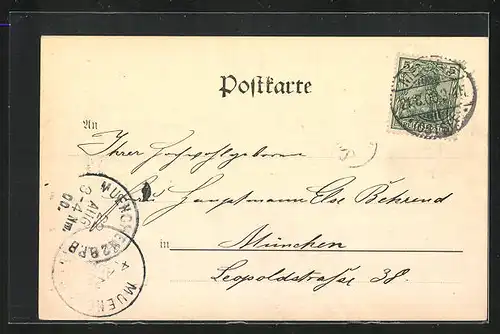 Postkarte
An
Ihrer Hochwohlgeboren
Hauptmann Else Behrend
in München
Leopoldstraße 38.
MUENCHEN
AUG
3-4 Nm.
00.
5 5